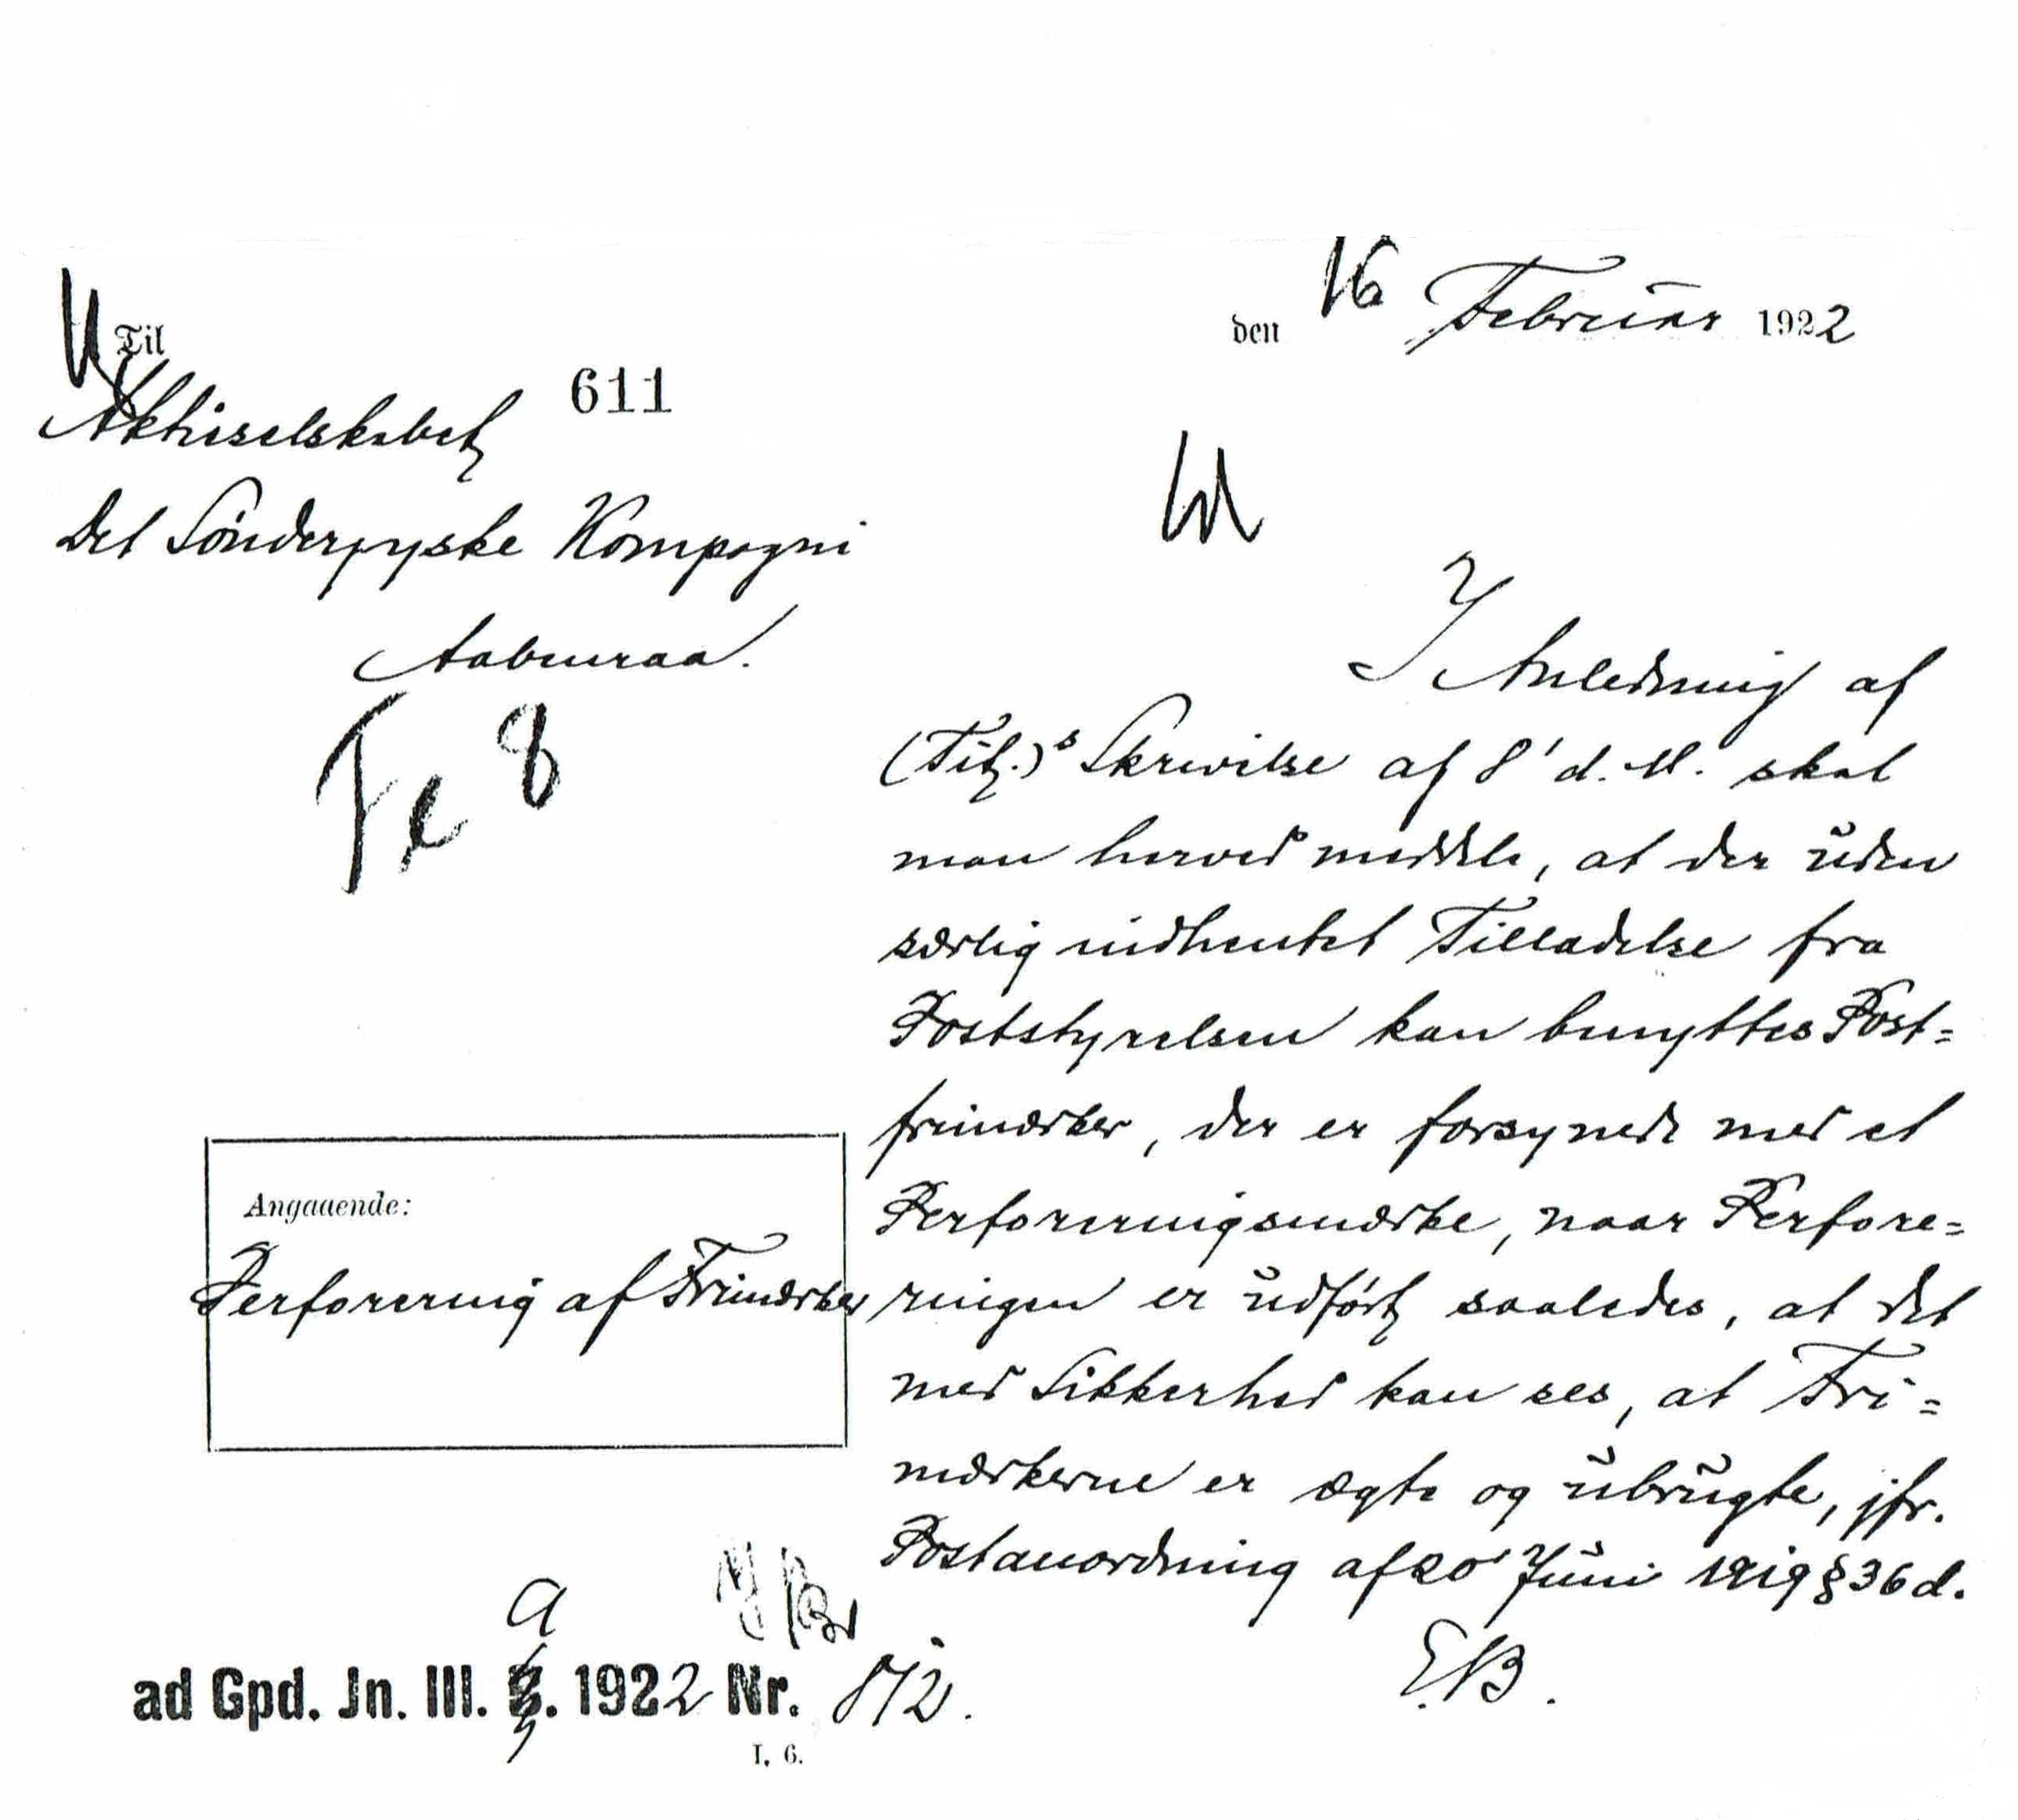 den 16 Februar 1922
Til
611
Aktieselskabet
Det Sønderjyske Kompagni
Aabenraa.
Fe 8
I Anledning af
(Tit.)s Skrivelse af 8' d. M. skal
man herved meddele, at der uden
særlig indhentet Tilladelse fra
Poststyrelsen kan benyttes Post=
frimærker, der er forsynede med et
Perforeringsmærke, naar Perfore=
ringen er udført saaledes, at det
med Sikkerhed kan ses, at Fri=
mærkerne er ægte og ubrugte, jfr.
Postanordning af 20' Juni 1919 § 36 d.
E.B.
Angaaende:
Perforering af Frimærker
a
ad Gpd. Jn. III. . 1922 Nr. 872.
I. 6.